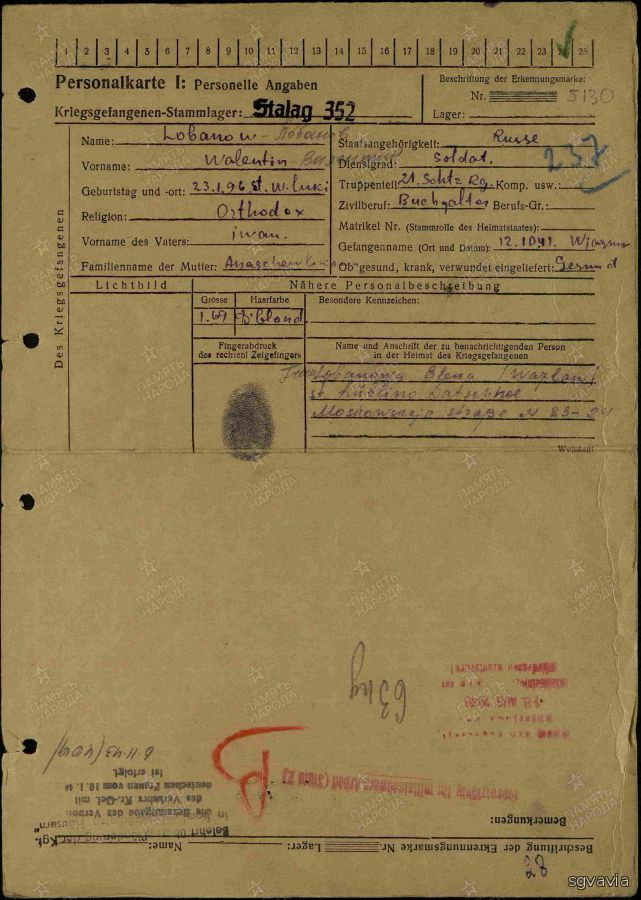 1 2 3 4 5 6 7 8 9 10 11 12 13 14 15 16 17 18 19 20 21 22 23 25
Personalkarte I: Personelle Angaben
Kriegsgefangenen-Stammlager: Stalag 352
Beschriftung der Erkennungsmarke:
Nr. 5130
Lager:
Des Kriegsgefangenen
Name: Lobanow - Лобанов
Vorname: Walentin - Валентин
Geburtstag und -ort: 23.1.96 st. W. Luki
Religion: Orthodox
Vorname des Vaters: iwan.
Familienname der Mutter:
Staatsangehörigkeit: Russe
Dienstgrad: Soldat.
237
Truppenteil: 21. Schtz Rg. Komp. usw.
Zivilberuf: Buchgalter Berufs-Gr.:
Matrikel Nr. (Stammrolle des Heimatstaates):
Gefangenname (Ort und Datum): 12.10.41. Wjasma
Ob gesund, krank, verwundet eingeliefert: Gesund
Lichtbild
Nähere Personalbeschreibung
Grösse
1.69
Haarfarbe
D'blond.
Besondere Kennzeichen:
Fingerabdruck
des rechten! Zeigefingers
Name und Anschrift der zu benachrichtigenden Person
in der Heimat des Kriegsgefangenen
Lobanowa Elena
st. Lublino Datschnoe
Moskowskaja straße N 23-21
Wenden!
63 kg
6.11.43
ist erfolgt.
deutschen Frauen vom 10.1.
des Verkehrs Kr.-Gef. mit
Einsatzfähig für mittelschwere Arbeit (Stand 2)
Bemerkungen:
Beschriftung der Erkennungsmarke Nr. Lager: Name:
28
ПАМЯТЬ НАРОДА
sgvavia